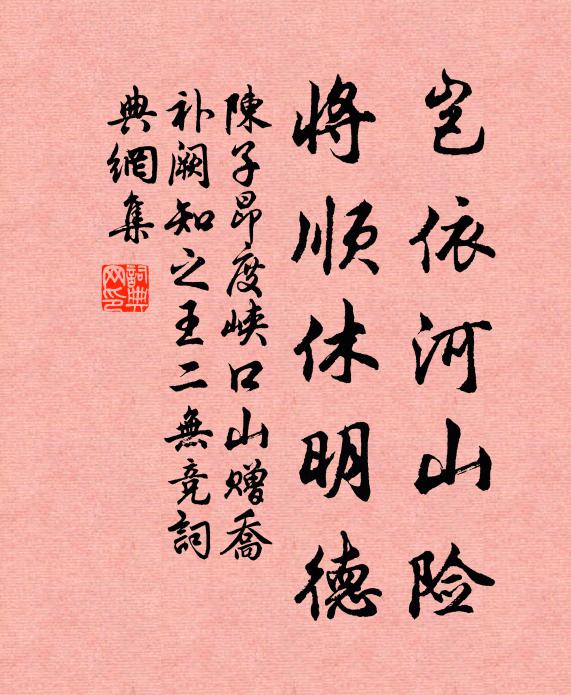 岂依河山险
将顺休明德
陳子昂度峡口山赠喬
补阙知之王二無竞詞
典網集
詞典网印